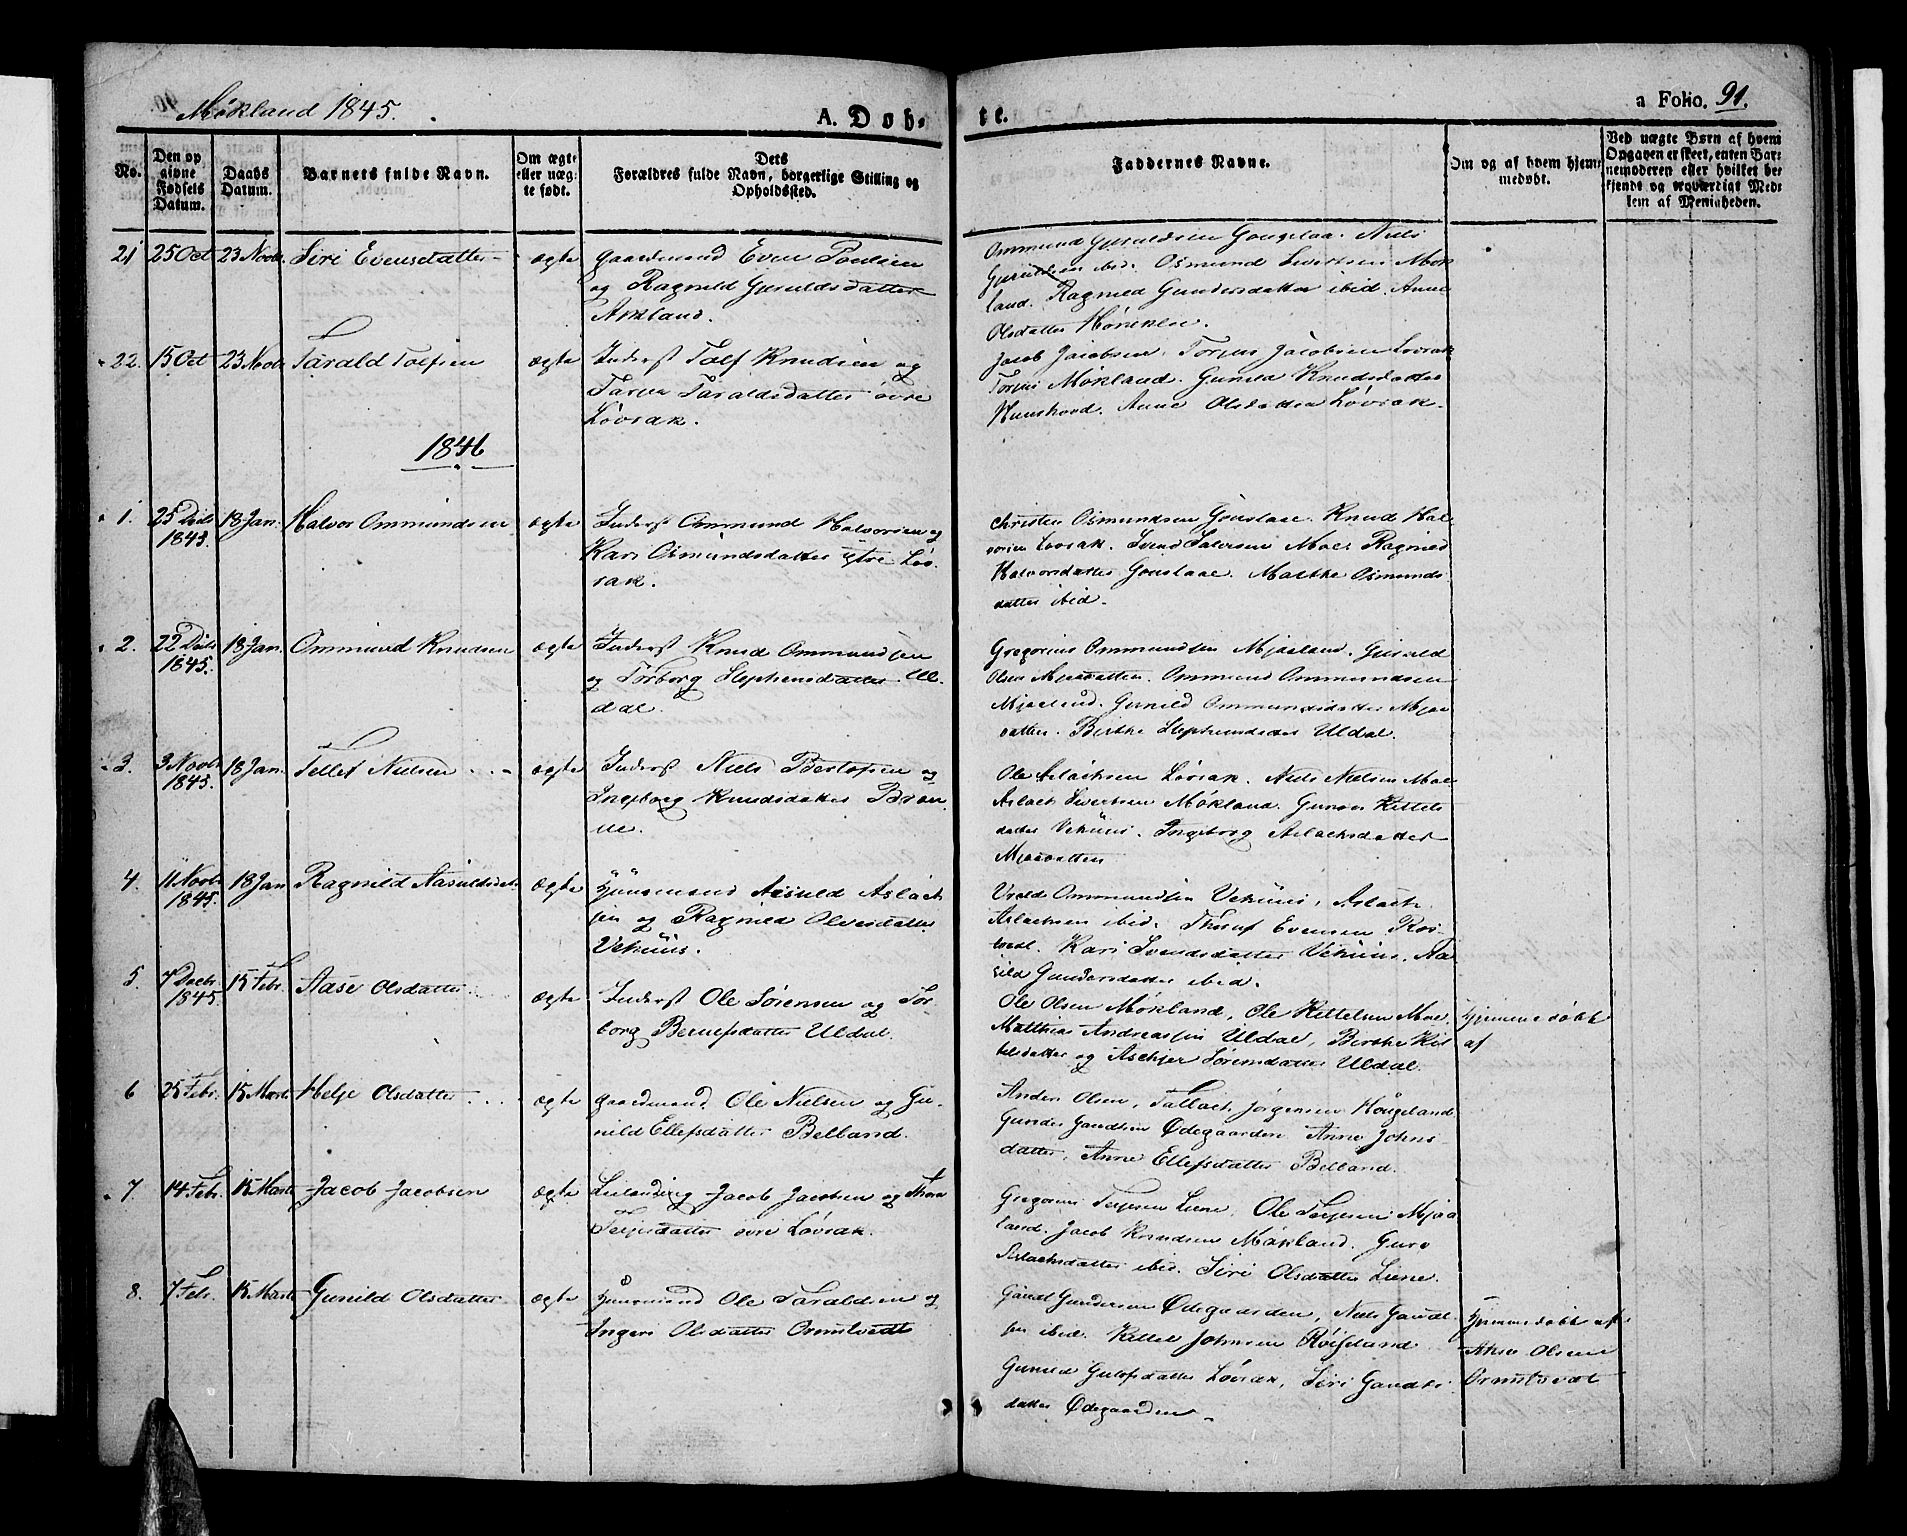 Mökland 1845.
A. Døb-
te.
a Folio. 91.
No.
Den op
givne
Fødsels
Datum.
Daabs
Datum.
Barnets fulde Navn.
Om ægte
eller uæg-
te født.
Dets
Forældres fulde Navn, borgerlige Stilling og
Opholdssted.
Faddernes Navne.
Om og af hvem hjem-
medøbt.
Ved uægte Børn af hvem
Opgaven er skeet, enten Bar-
nemoderen eller hvilket be-
kjendt og troværdigt Med-
lem af Menigheden.
21 25 Oct 23 Novbr. Siri Evensdatter ægte
Gaardmand Even Poulsen
og Ragnild Gjeruldsdatter
Askland.
Ommund Gjeruldsen Gouslaa. Niels
Gjeruldsen ibid. Osmund Sivertsen Mök
land. Ragnild Gundersdatter ibid. Anne
Olsdatter
22. 15 Oct 23 Novbr Tarald Tolfsen ægte
Inderst Tolf Knudsen og
Taraldsdatter övre
Lövrak.
Jacob Jacobsen, Torjus Jacobsen Lövrak
Torjus Mökland. Gunild Knudsdatter
Anne Olsdatter Lövrak.
1846
1. 25 Decbr 1845. 18 Jan. Halvor Ommundsen ægte
Inderst Ommund Halvorsen og
Kari Osmundsdatter ytre Löv
rak.
Christen Osmundsen Gouslaae. Knud Hal
vorsen Lövrak. Svend Moe. Ragnild
Halvorsdatter Gouslaae. Marthe Osmunds
datter ibid.
2. 22 Decbr 1845. 18 Jan. Ommund Knudsen ægte
Inderst Knud Ommundsen
og Torborg Stephensdatter Ul-
dal.
Gregorius Ommundsen Mjaaland. Gjeruld
Olsen Mjaavatten. Ommund Ommundsen
Mjaaland. Gunild Ommundsdatter Mjaa
vatten. Birthe Stephensdatter Uldal.
3. 3 Novbr 1845. 18 Jan. Tellef Nielsen ægte
Inderst Niels Bertofsen og
Ingeborg Knudsdatter Brön
ne.
Ole Aslachsen Lövrak. Niels Nielsen Moe
Aslach Sivertsen Mökland. Gunvor Kittels
datter Vehuus. Ingeborg Aslachsdatter
Mjaavatten
4. 11 Novbr 1845. 18 Jan Ragnild Aasuldsdat. ægte
Huusmand Aasuld Aslach
sen og Ragnild Olvesdatter
Vehuus.
Ommundsen Vehuus, Aslach
Aslachsen ibid. Evensen Ros-
Kari Svendsdatter Vehuus. Aa
sild Gundersdatter ibid.
5. 7 Decbr 1845. 15 Febr. Aase Olsdatter ægte
Inderst Ole Sörensen og Tor
borg Berulfsdatter Uldal.
Ole Olsen Mökland, Ole Kittelsen Moe,
Matthias Andreassen Uldal, Birthe Kit
telsdatter og Aschjer Sörensdatter Uldal.
Hjemmedöbt
af
6 25 Febr. 15 Marts Helje Olsdatter ægte
Gaardmand Ole Nielsen og Gu-
nild Ellefsdatter Belland.
Anders Olsen, Tallach Jörgensen Höugeland
Gunder Gundersen Ödegaarden. Anne Johns-
datter, Anne Ellefsdatter Belland.
7. 14 Febr. 15 Marts Jacob Jacobsen ægte
Leilending Jacob Jacobsen og Thora
Terjesdatter övre Lövrak.
Gregorius Terjesen Liene. Ole Terjesen Mjaa
land. Jacob Knudsen Mökland. Guro
Aslachsdatter ibid. Siri Olsdatter Liene.
8. 7 Febr. 15 Marts Gunild Olsdatter ægte
Huusmand Ole Taraldsen og
Ingeri Olsdatter Ormtvedt
Gaudt Gundersen Ödegaarden, Niels Gaudt
sen ibid. Kittel Johnsen Röisland.
Gunild Gulofsdatter Lövrak, Siri Gaudts
datter Ödegaarden.
Hjemmedöbt af
Olsen
Ormtvedt